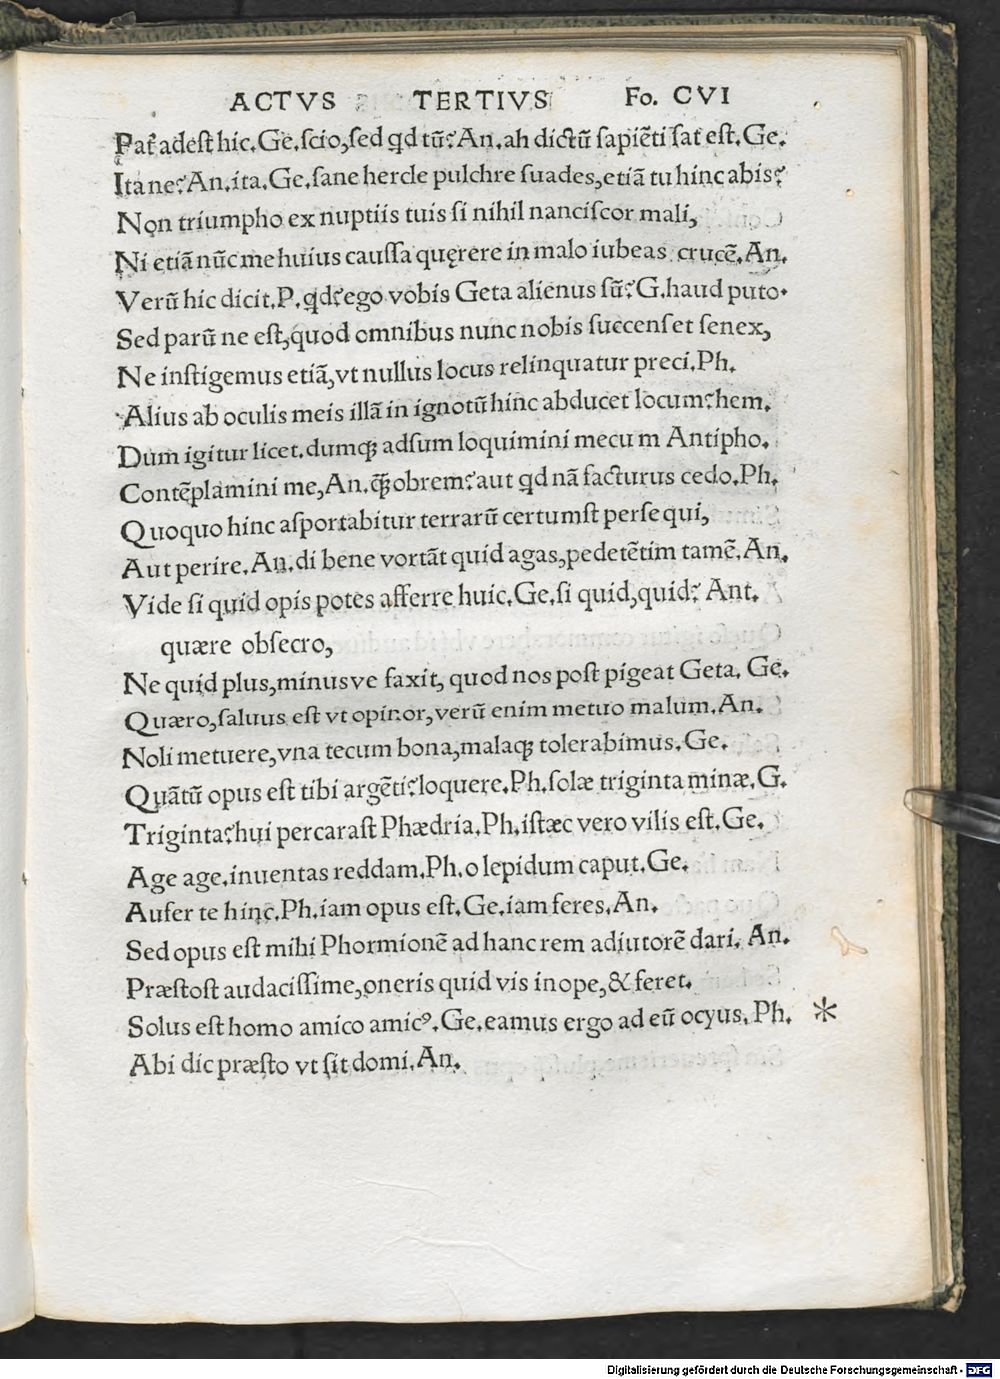 ACTVS TERTIVS Fo. CVI
Pat̃ adest hic. Ge. scio, sed qd tũ? An. ah dictũ sapiẽti sat est. Ge.
Itane? An. ita. Ge. sane hercle pulchre suades, etiã tu hinc abis?
Non triumpho ex nuptiis tuis si nihil nanciscor mali,
Ni etiã nũc me huius caussa quęrere in malo iubeas crucẽ. An.
Verũ hic dicit. P. qd? ego vobis Geta alienus sũ? G. haud puto.
Sed parũ ne est, quod omnibus nunc nobis succenset senex,
Ne instigemus etiã, vt nullus locus relinquatur preci. Ph.
Alius ab oculis meis illã in ignotũ hinc abducet locum? hem.
Dum igitur licet. dumqꝫ adsum loquimini mecu m Antipho.
Contẽplamini me, An. q̃obrem? aut qd nã facturus cedo. Ph.
Quoquo hinc asportabitur terrarũ certumst persequi,
Aut perire. An. di bene vortãt quid agas, pedetẽtim tamẽ. An.
Vide si quid opis potes afferre huic. Ge. si quid, quid? Ant.
quære obsecro,
Ne quid plus, minusve faxit, quod nos post pigeat Geta. Ge.
Quæro, saluus est vt opinor, verũ enim metuo malum. An.
Noli metuere, vna tecum bona, malaqꝫ tolerabimus. Ge.
Quãtũ opus est tibi argẽti? loquere. Ph. solæ triginta minæ. G.
Triginta? hui percarast Phædria. Ph. istæc vero vilis est. Ge.
Age age. inuentas reddam. Ph. o lepidum caput. Ge.
Aufer te hinc. Ph. iam opus est. Ge. iam feres. An.
Sed opus est mihi Phormionẽ ad hanc rem adiutorẽ dari. An.
Præstost audacissime, oneris quid vis inope, & feret.
Solus est homo amico amicꝰ. Ge. eamus ergo ad eũ ocyus. Ph. *
Abi dic præsto vt sit domi. An.
Digitalisierung gefördert durch die Deutsche Forschungsgemeinschaft - DFG